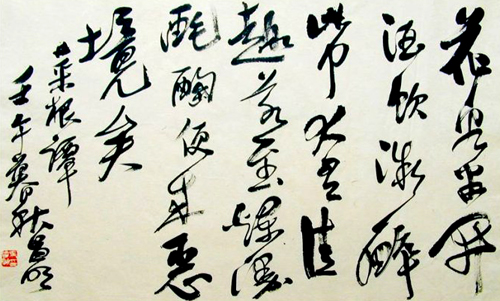 花看半開
酒飲微醉
此中大有佳
趣若至爛漫
酕醄便成惡
境矣
菜根譚
壬午暮秋